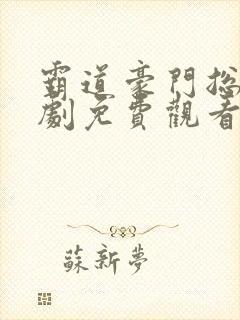 霸道豪門總
劇免費觀看
蘇新夢